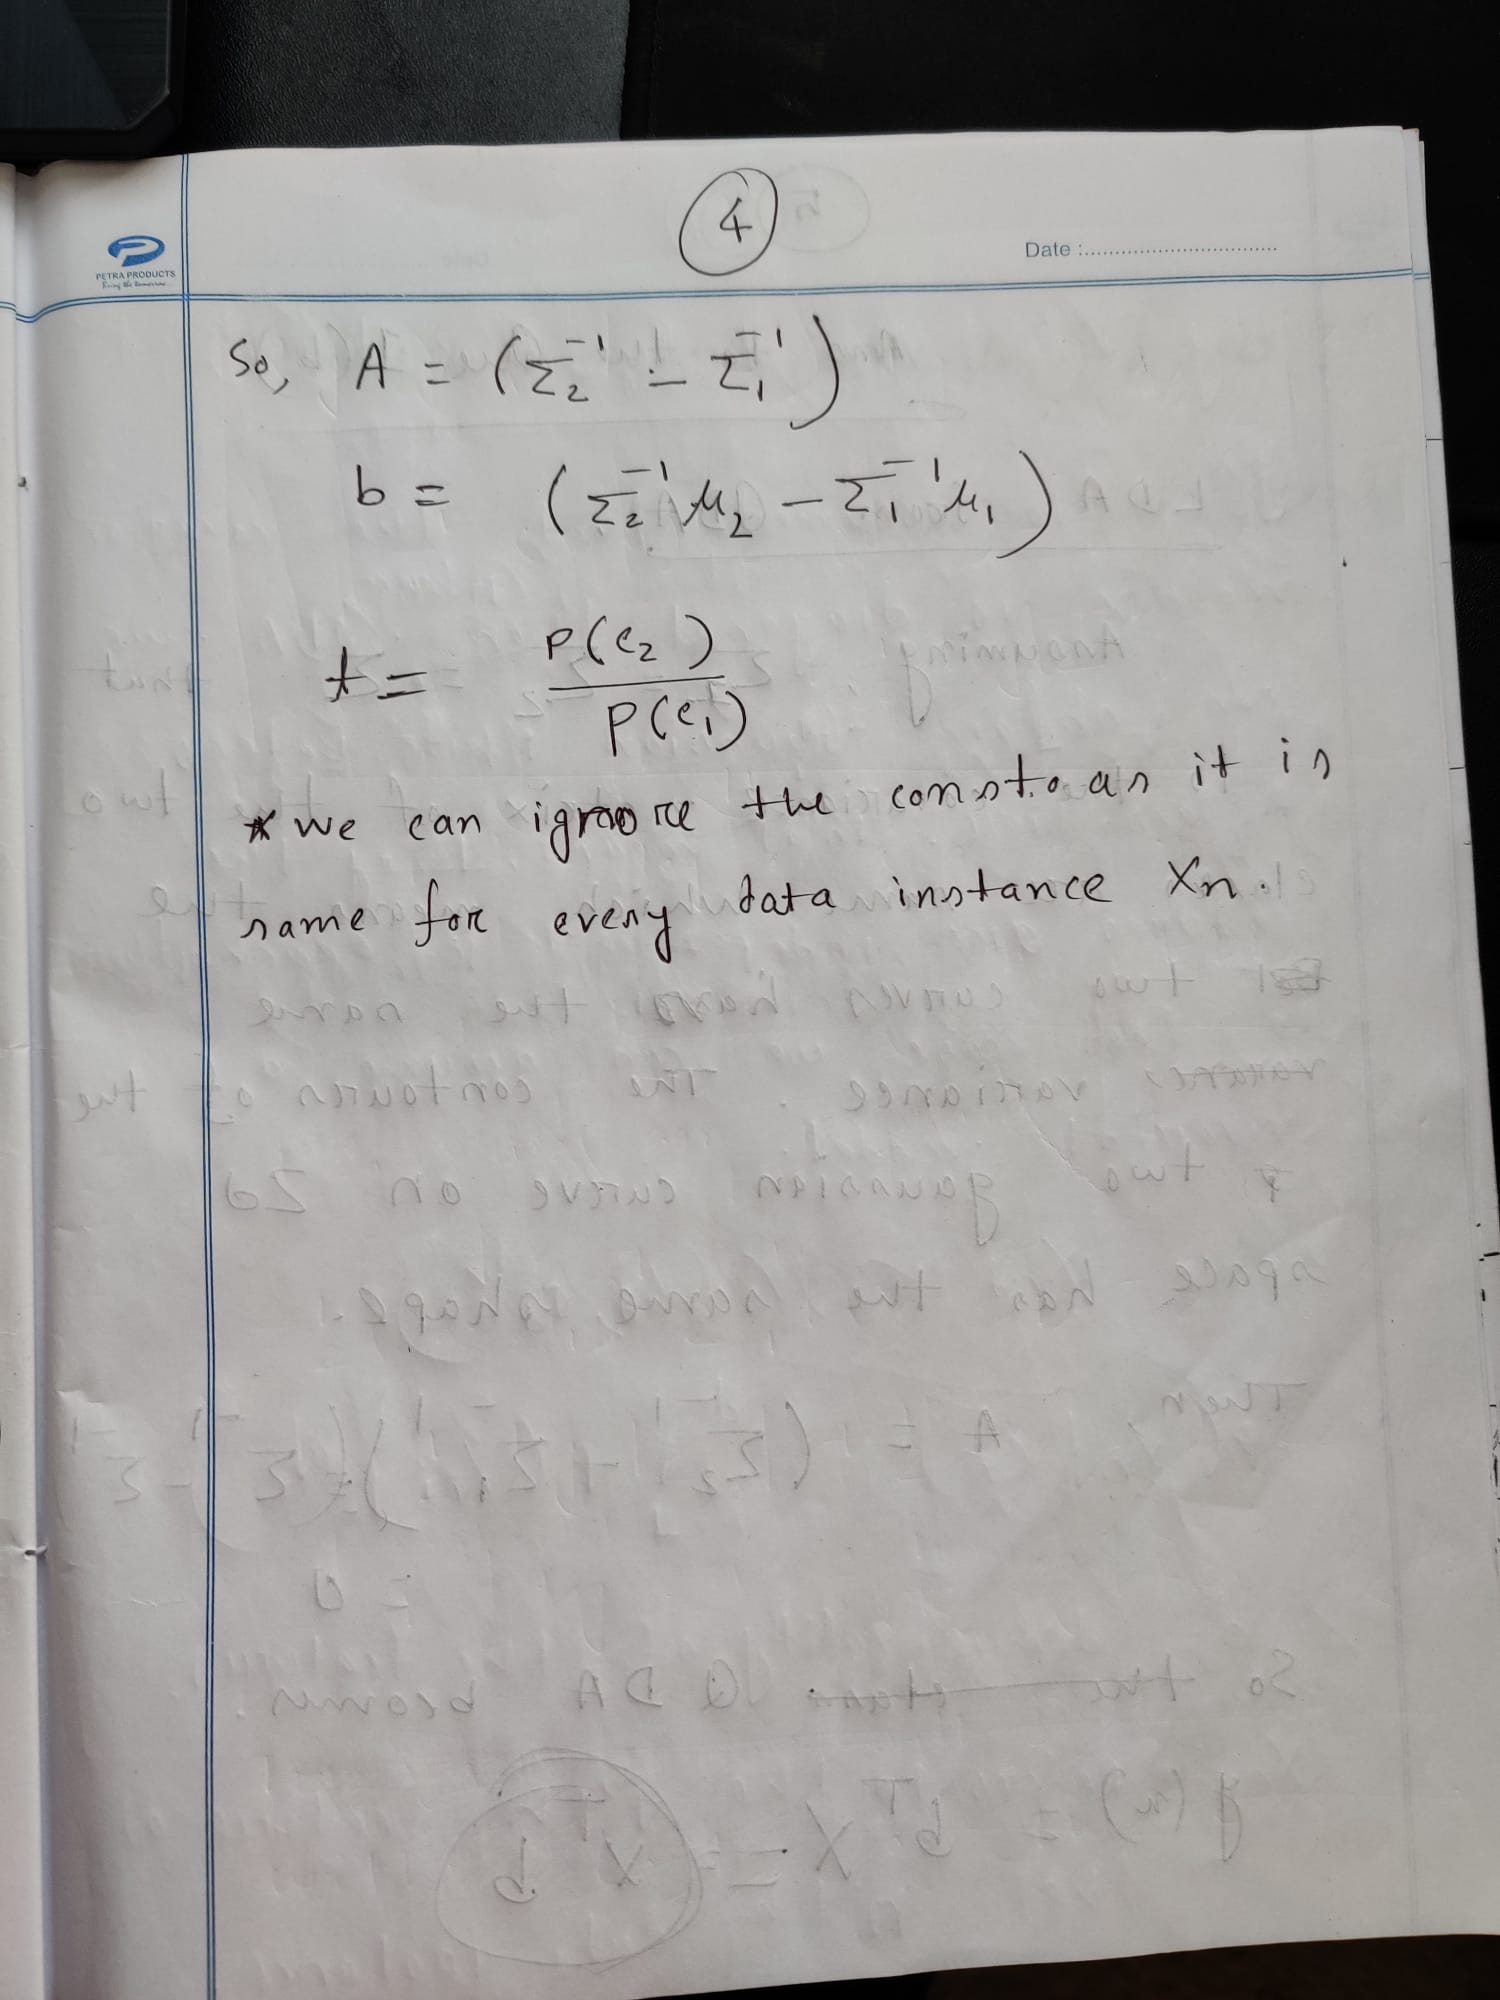 4
PETRA PRODUCTS
Date :
So, A = (Σ₂⁻¹ - Σ₁⁻¹)
b = (Σ₂⁻¹ μ₂ - Σ₁⁻¹ μ₁)
t = P(c₂) / P(c₁)
* we can ignore the const. as it is
same for every data instance Xn.